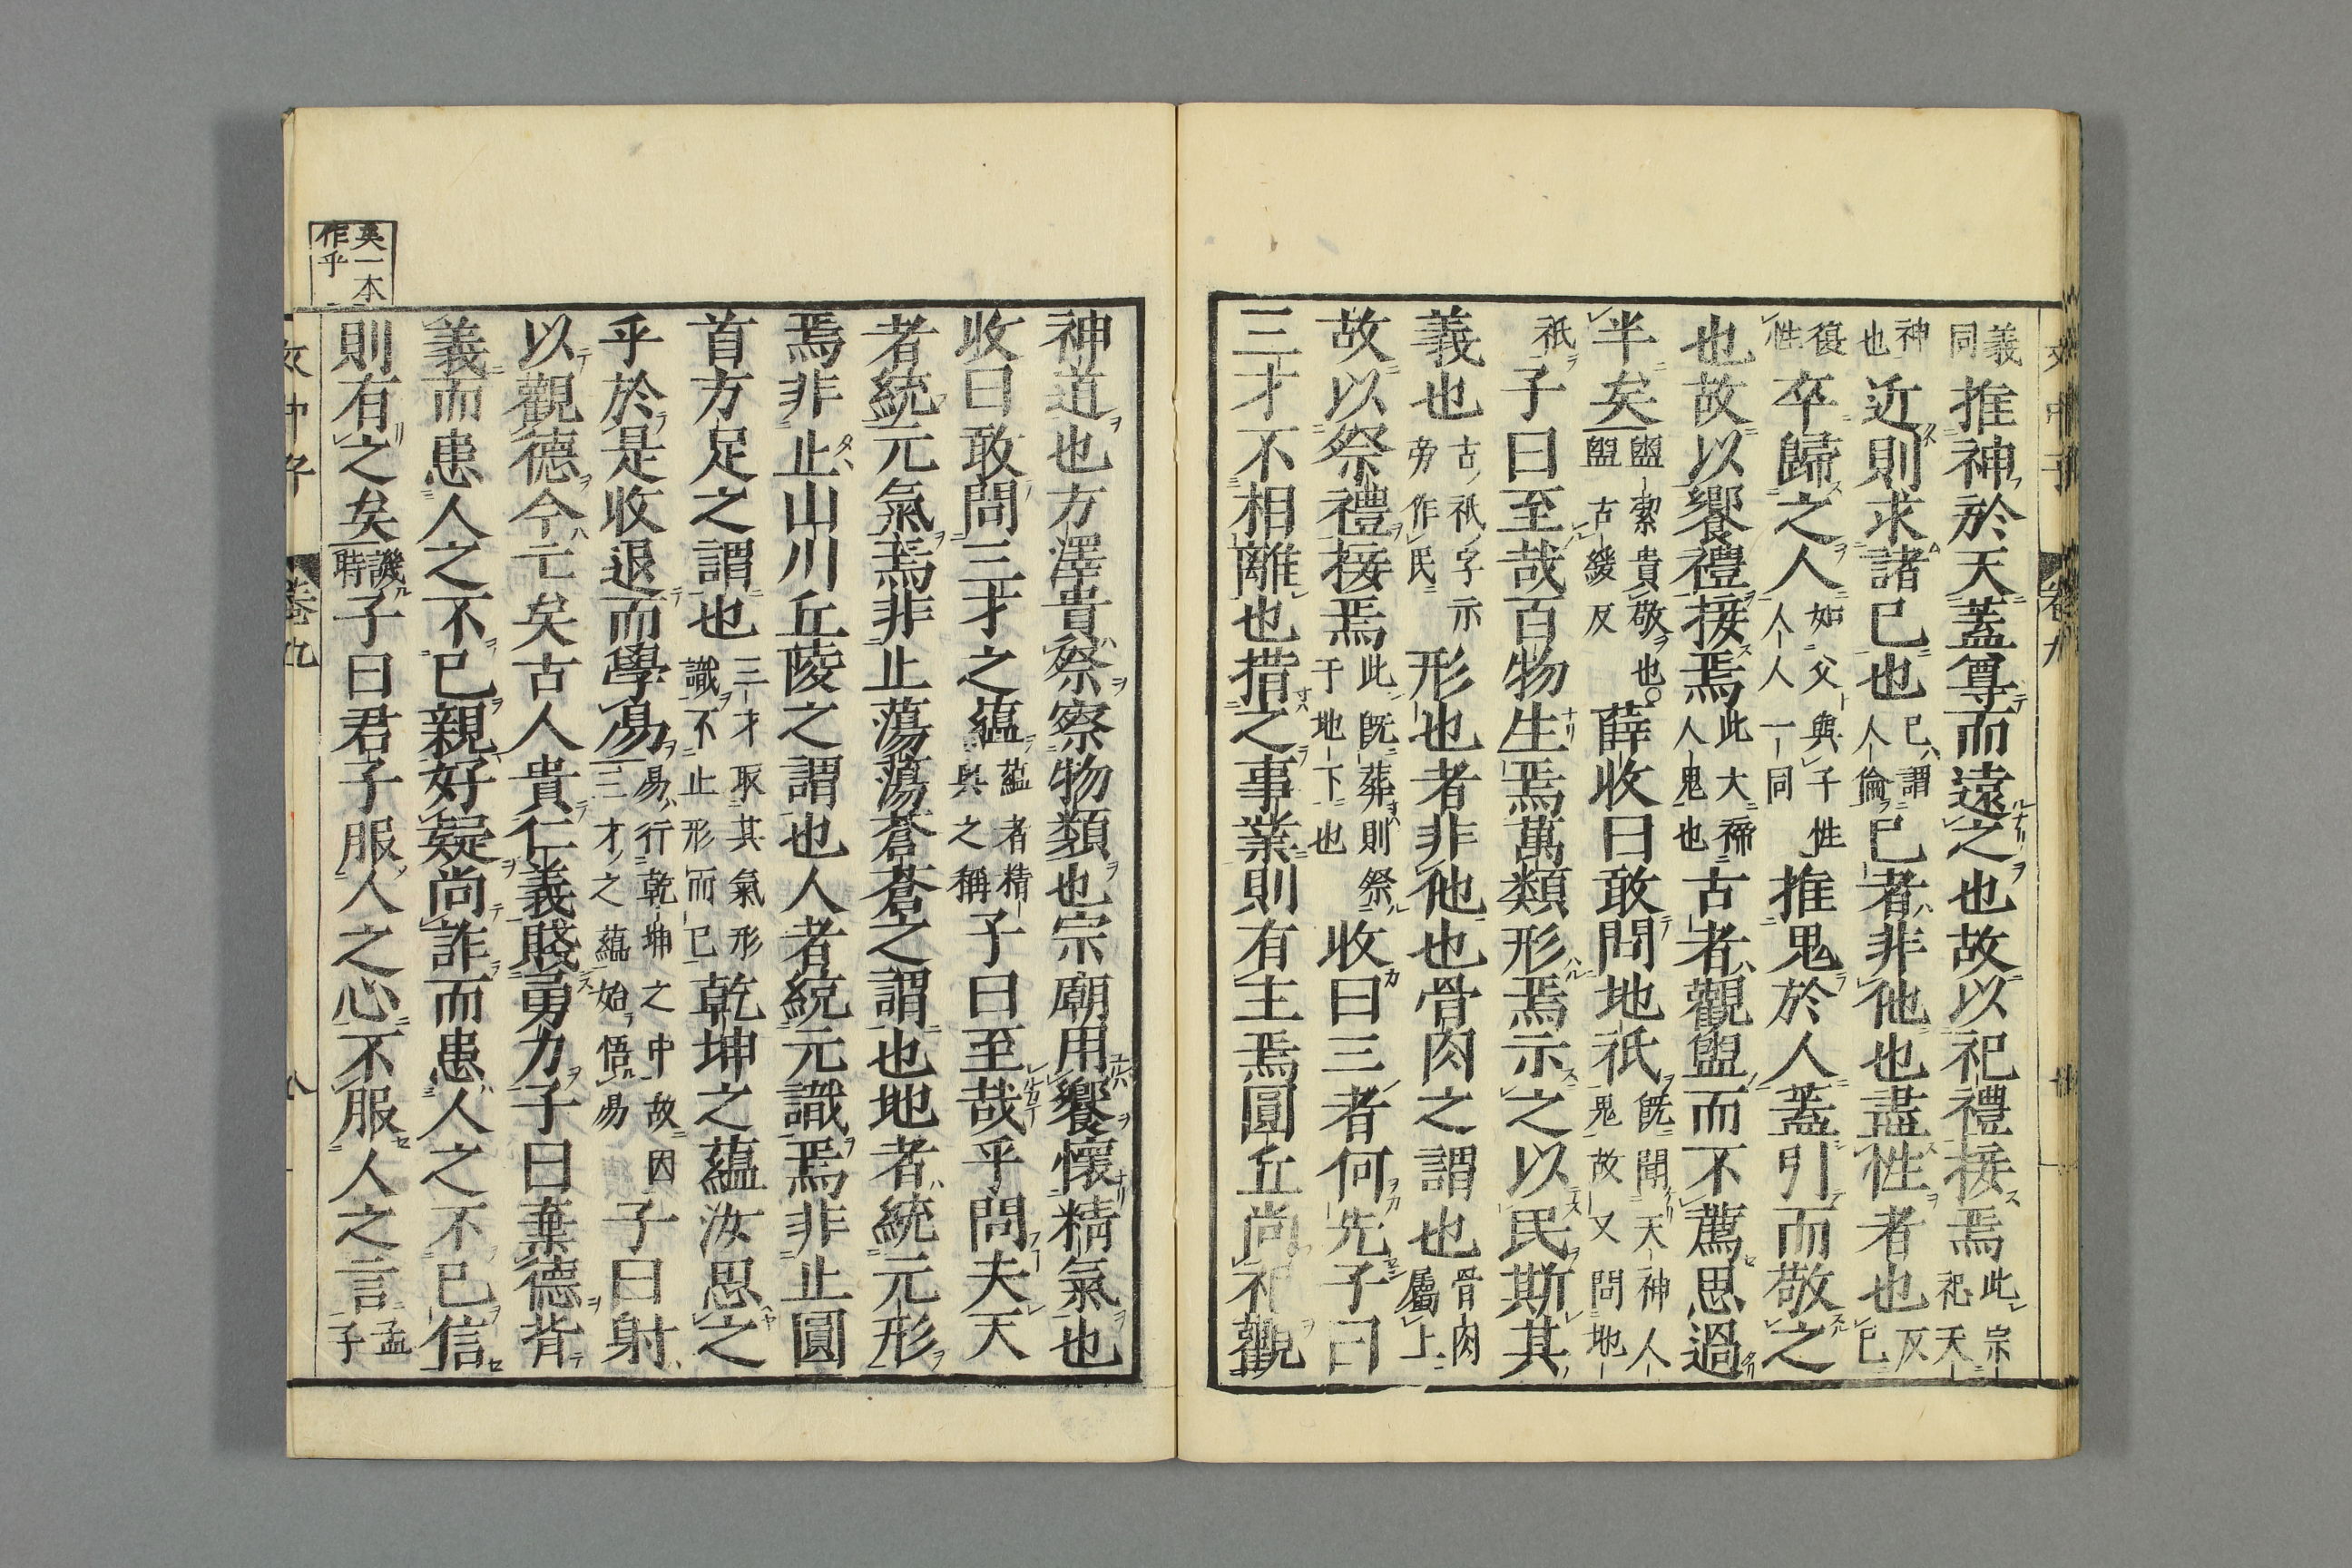 義同推神於天蓋尊而遠之也故以祀禮接焉此宗祀天
神也近則求諸巳也巳謂人倫巳者非他也盡性者也反巳
復性卒歸之人如父與子性人人一同推鬼於人蓋引而敬之
也故以饗禮接焉此大禘人鬼也古者觀盥而不薦思過
半矣盥潔貴敬也○盥古緩反薛收曰敢問地祇既聞天神人鬼故又問地
祇子曰至哉百物生焉萬類形焉示之以民斯其
義也古祇字示旁作民形也者非他也骨肉之謂也骨肉屬上
故以祭禮接焉此既葬則祭于地下也收曰三者何先子曰
三才不相離也措之事業則有主焉圓丘尚祀觀
神道也方澤貴祭察物類也宗廟用饗懷精氣也
收曰敢問三才之蘊蘊者精與之稱子曰至哉乎問夫天
者統元氣焉非止蕩蕩蒼蒼之謂也地者統元形
焉非止山川丘陵之謂也人者統元識焉非止圓
首方足之謂也三才取其氣形識不止形而已乾坤之蘊汝思之
乎於是收退而學易易行乾坤之中故因三才之蘊始悟易子曰射
以觀德今亡矣古人貴仁義賤勇力子曰棄德背
義而患人之不巳親好疑尚詐而患人之不巳信
則有之矣譏時子曰君子服人之心不服人之言孟子
矣一本
作乎
文中子
卷九